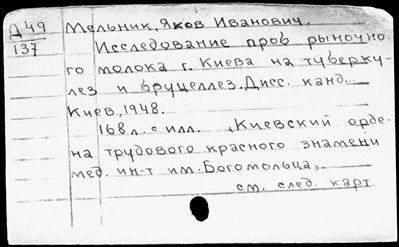 Д49 Мельник, Яков Иванович.
137 Исследование проб рыночно-
го молока г. Киева на туберку-
лез и бруцеллез. Дисс. канд...
Киев, 1948.
168л. с илл., Киевский орде-
на трудового красного знамени
мед. ин-т им. Богомольца,.
см. след. карт.